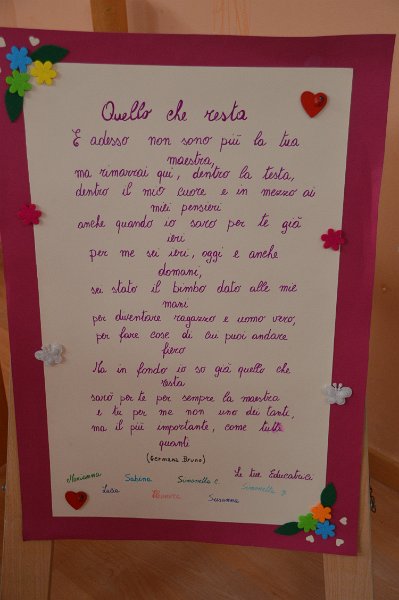 Quello che resta
E adesso non sono più la tua
maestra,
ma rimarrai qui, dentro la testa,
dentro il mio cuore e in mezzo ai
miei pensieri
anche quando io sarò per te già
ieri
per me sei ieri, oggi e anche
domani,
sei stato il bimbo dato alle mie
mani
per diventare ragazzo e uomo vero,
per fare cose di cui puoi andare
fiero
Ma in fondo io so già quello che
resta
sarò per te per sempre la maestra
e tu per me non uno dei tanti,
ma il più importante, come tutti
quanti
(Germana Bruno)
Le tue Educatrici
Marianna Sabina Simonetta C. Simonetta P.
Lucia Monica Susanna